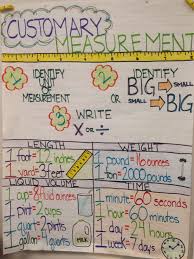 CUSTOMARY
MEASUREMENT
1 IDENTIFY
MEASUREMENT
2 IDENTIFY
BIG → SMALL
SMALL → BIG
3 WRITE
X or ÷
LENGTH
1 foot = 12 inches
1 yard = 3 feet
WEIGHT
1 pound = 16 ounces
1 ton = 2000 pounds
LIQUID VOLUME
1 cup = 8 fluid ounces
1 pint = 2 cups
1 quart = 2 pints
1 gallon = 4 quarts
MILK
TIME
1 minute = 60 seconds
1 hour = 60 minutes
1 day = 24 hours
1 week = 7 days